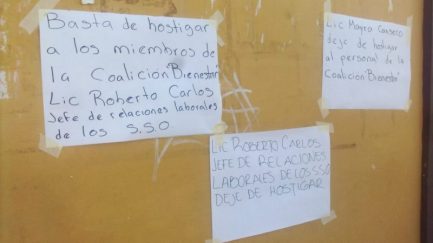 Basta de hostigar
a los miembros de
la Coalición "Bienestar"
Lic Roberto Carlos
Jefe de relaciones laborales
de los S.S.O
Lic Mayra Canseco
deje de hostigar
al personal de la
Coalición "Bienestar"
LIC ROBERTO CARLOS
JEFE DE RELACIONES
LABORALES DE LOS SSO
DEJE DE HOSTIGAR